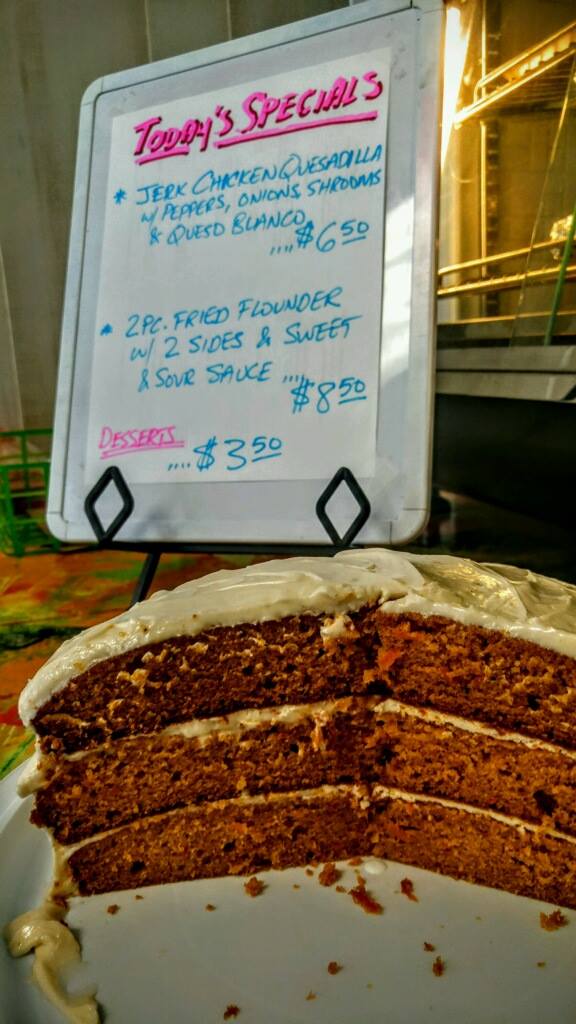 TODAY'S SPECIALS
* JERK CHICKEN QUESADILLA
W/ PEPPERS, ONIONS, SHROOMS
& QUESO BLANCO
....$6 50
* 2PC. FRIED FLOUNDER
W/ 2 SIDES & SWEET
& SOUR SAUCE ....
$8 50
DESSERTS
....$3 50